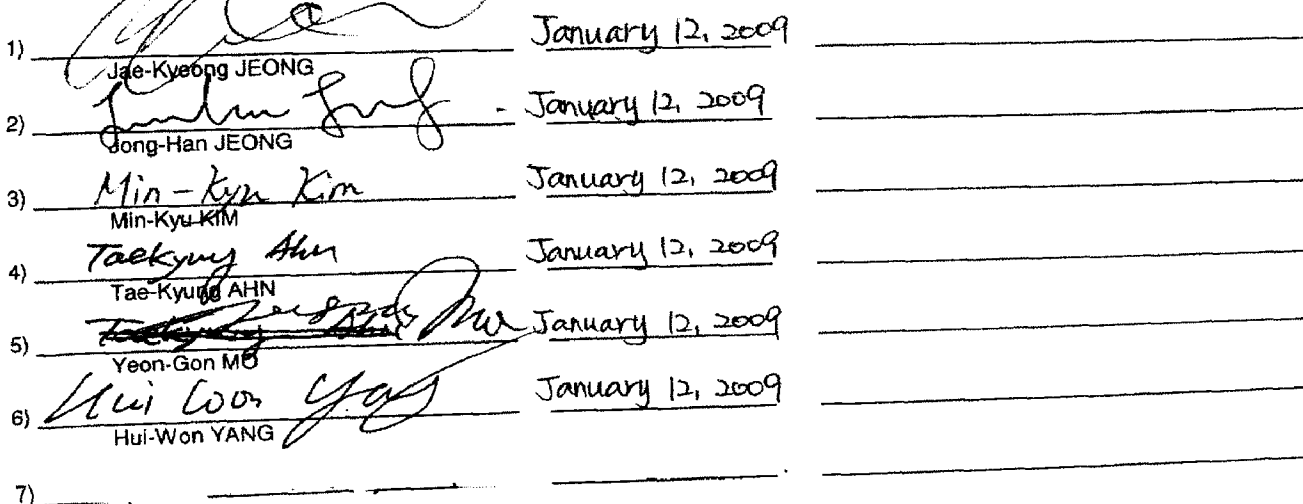 1) January 12, 2009
Jae-Kyeong JEONG
2) January 12, 2009
Jong-Han JEONG
3) Min-Kyu Kim January 12, 2009
Min-Kyu KIM
4) Taekyung Ahn January 12, 2009
Tae-Kyung AHN
5) January 12, 2009
Yeon-Gon MO
6) Hui Won Yang January 12, 2009
Hui-Won YANG
7)